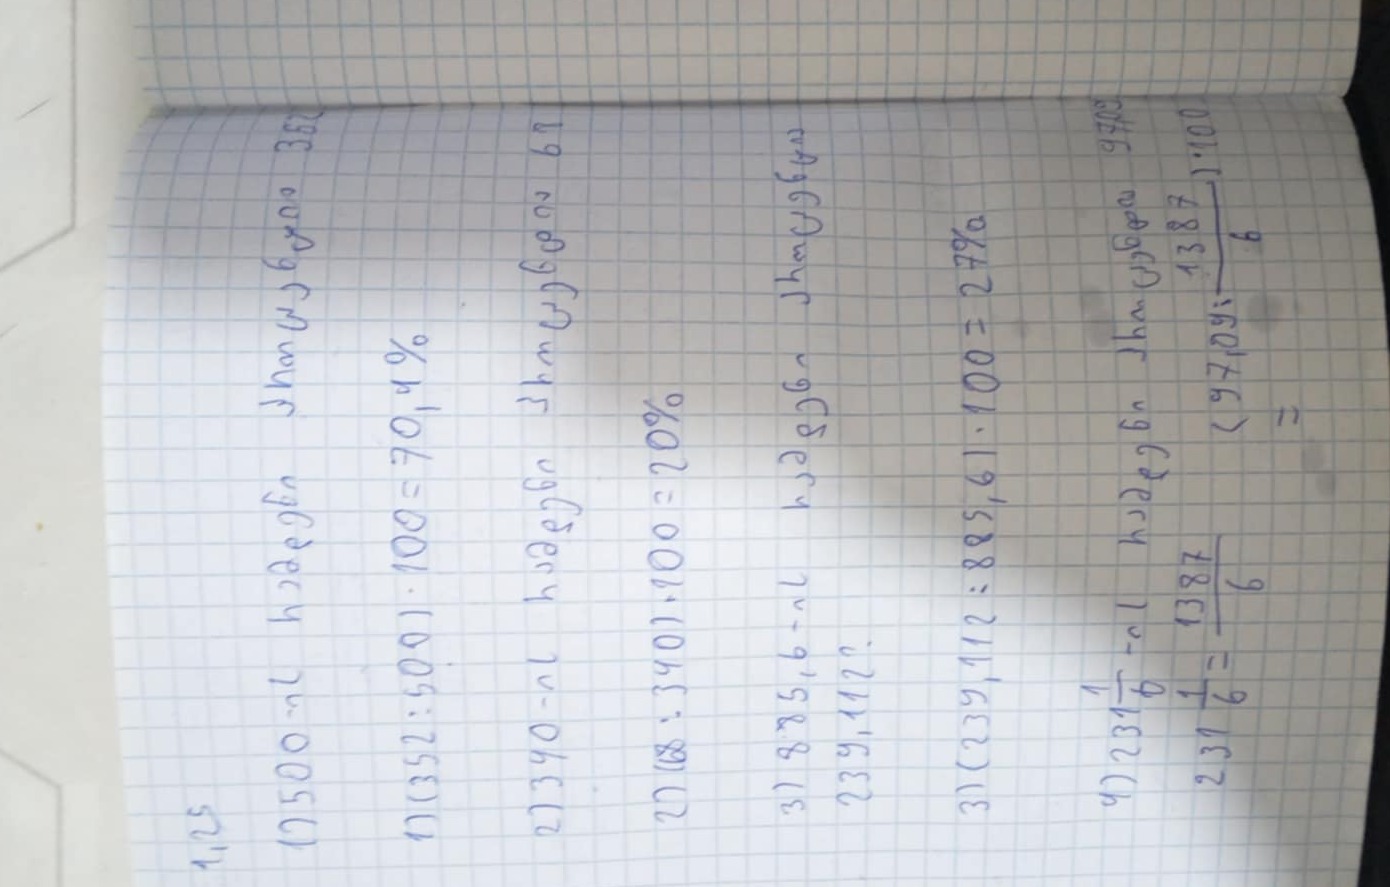 1,25
1) 500-ის რამდენი პროცენტია 352
1) (352:500)·100=70,4%
2) 340-ის რამდენი პროცენტია 68
2) (68:340)·100=20%
3) 885,6-ის რამდენი პროცენტია
239,112?
3) (239,112:885,6)·100=27%
4) 231 1/6-ის რამდენი პროცენტია 97,09
231 1/6 = 1387/6 (97,09: 1387/6)·100
=